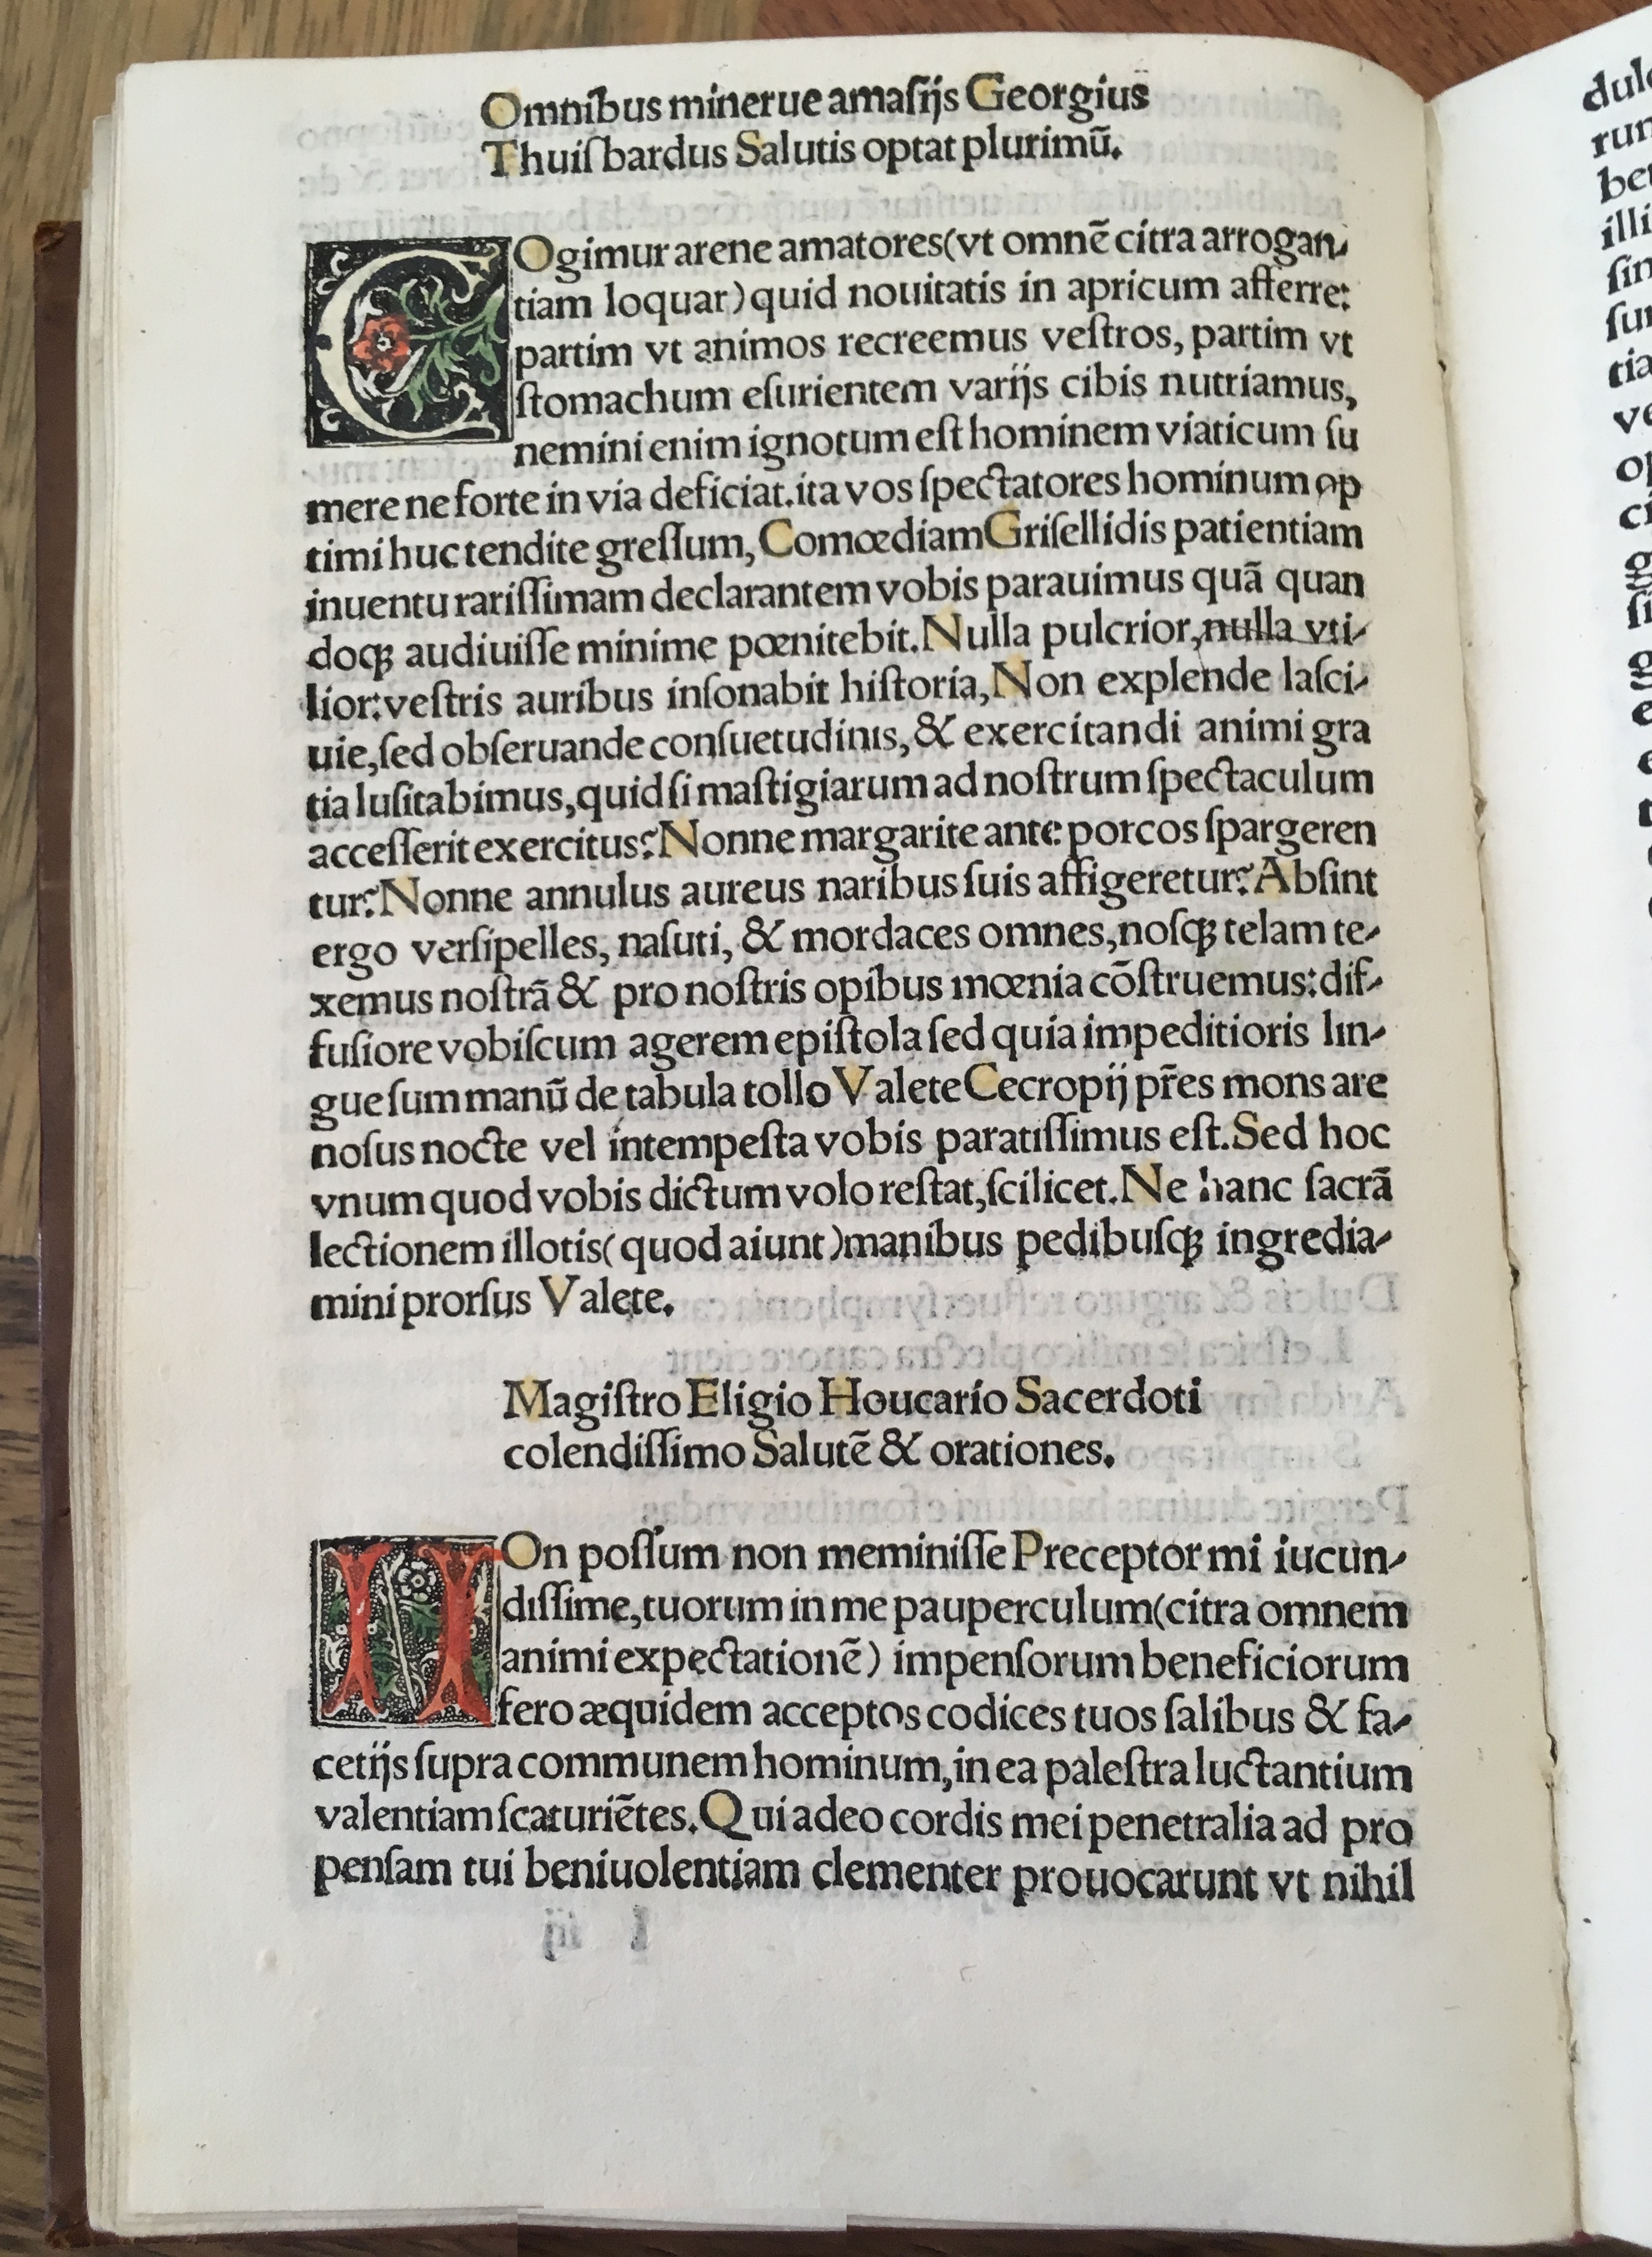 Omnibus minerue amaſijs Georgius
Thuiſbardus Salutis optat plurimū.
COgimur arene amatores(vt omnē citra arrogan-
tiam loquar) quid nouitatis in apricum afferre:
partim vt animos recreemus veſtros, partim vt
ſtomachum eſurientem varijs cibis nutriamus,
nemini enim ignotum eſt hominem viaticum ſu
mere ne forte in via deficiat. ita vos ſpectatores hominum op
timi huc tendite greſſum, Comœdiam Griſellidis patientiam
inuentu rariſſimam declarantem vobis parauimus quā quan
doqꝫ audiuiſſe minime pœnitebit. Nulla pulcrior, nulla vti-
lior: veſtris auribus inſonabit hiſtoria, Non explende laſci-
uie, ſed obſeruande conſuetudinis, & exercitandi animi gra
tia luſitabimus, quid ſi maſtigiarum ad noſtrum ſpectaculum
acceſſerit exercitus? Nonne margarite ante porcos ſpargeren
tur? Nonne annulus aureus naribus ſuis affigeretur? Abſint
ergo verſipelles, naſuti, & mordaces omnes, noſqꝫ telam te-
xemus noſtrā & pro noſtris opibus mœnia cōſtruemus: dif-
fuſiore vobiſcum agerem epiſtola ſed quia impeditioris lin-
gue ſum manū de tabula tollo Valete Cecropij pr̄es mons are
noſus nocte vel intempeſta vobis paratiſſimus eſt. Sed hoc
vnum quod vobis dictum volo reſtat, ſcilicet. Ne hanc ſacrā
lectionem illotis( quod aiunt )manibus pedibuſqꝫ ingredia-
mini prorſus Valete.
Magiſtro Eligio Houcario Sacerdoti
colendiſſimo Salutē & orationes.
NOn poſſum non meminiſſe Preceptor mi iucun-
diſſime, tuorum in me pauperculum(citra omnem
animi expectationē) impenſorum beneficiorum
fero æquidem acceptos codices tuos ſalibus & fa-
cetijs ſupra communem hominum, in ea paleſtra luctantium
valentiam ſcaturiētes. Qui adeo cordis mei penetralia ad pro
penſam tui beniuolentiam clementer prouocarunt vt nihil